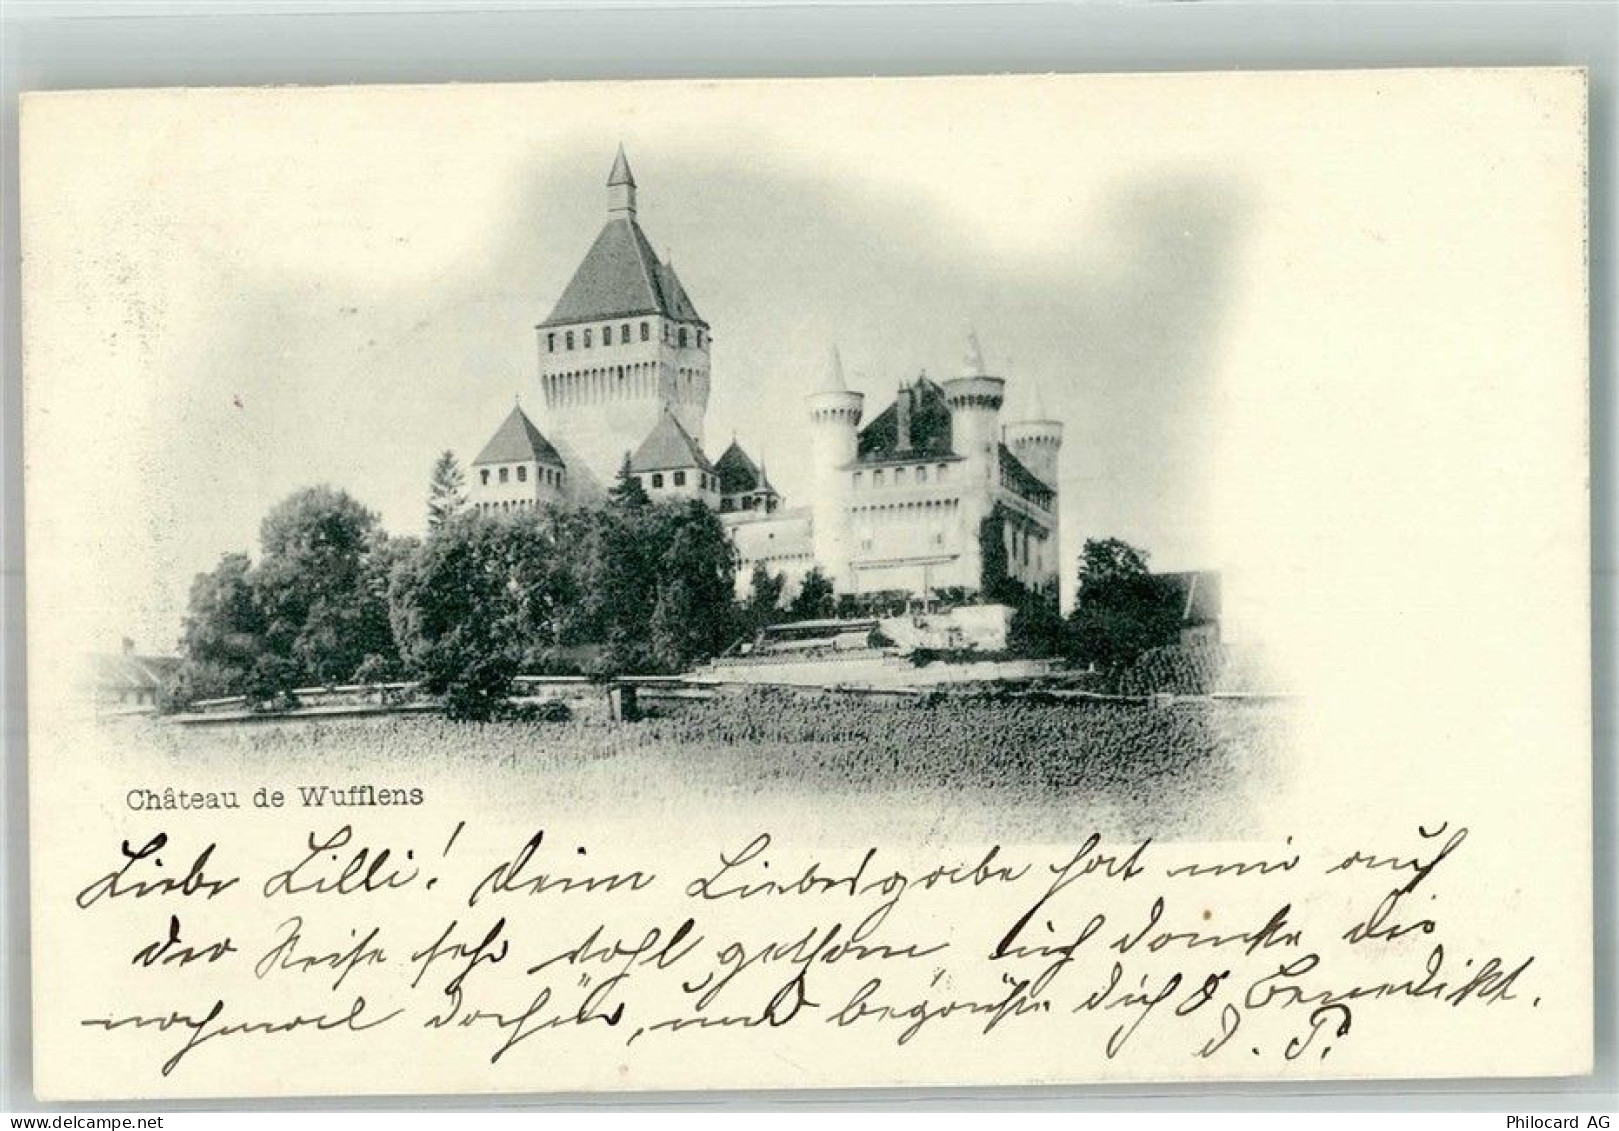 Château de Wufflens
Liebe Lilli! Deine Liebesgabe hat mir auf
der Reise sehr wohl gethan ich danke dir
nochmal dafür, und begrüße dich & Benedikt.
D. P.
hippostcard.com
Philocard AG